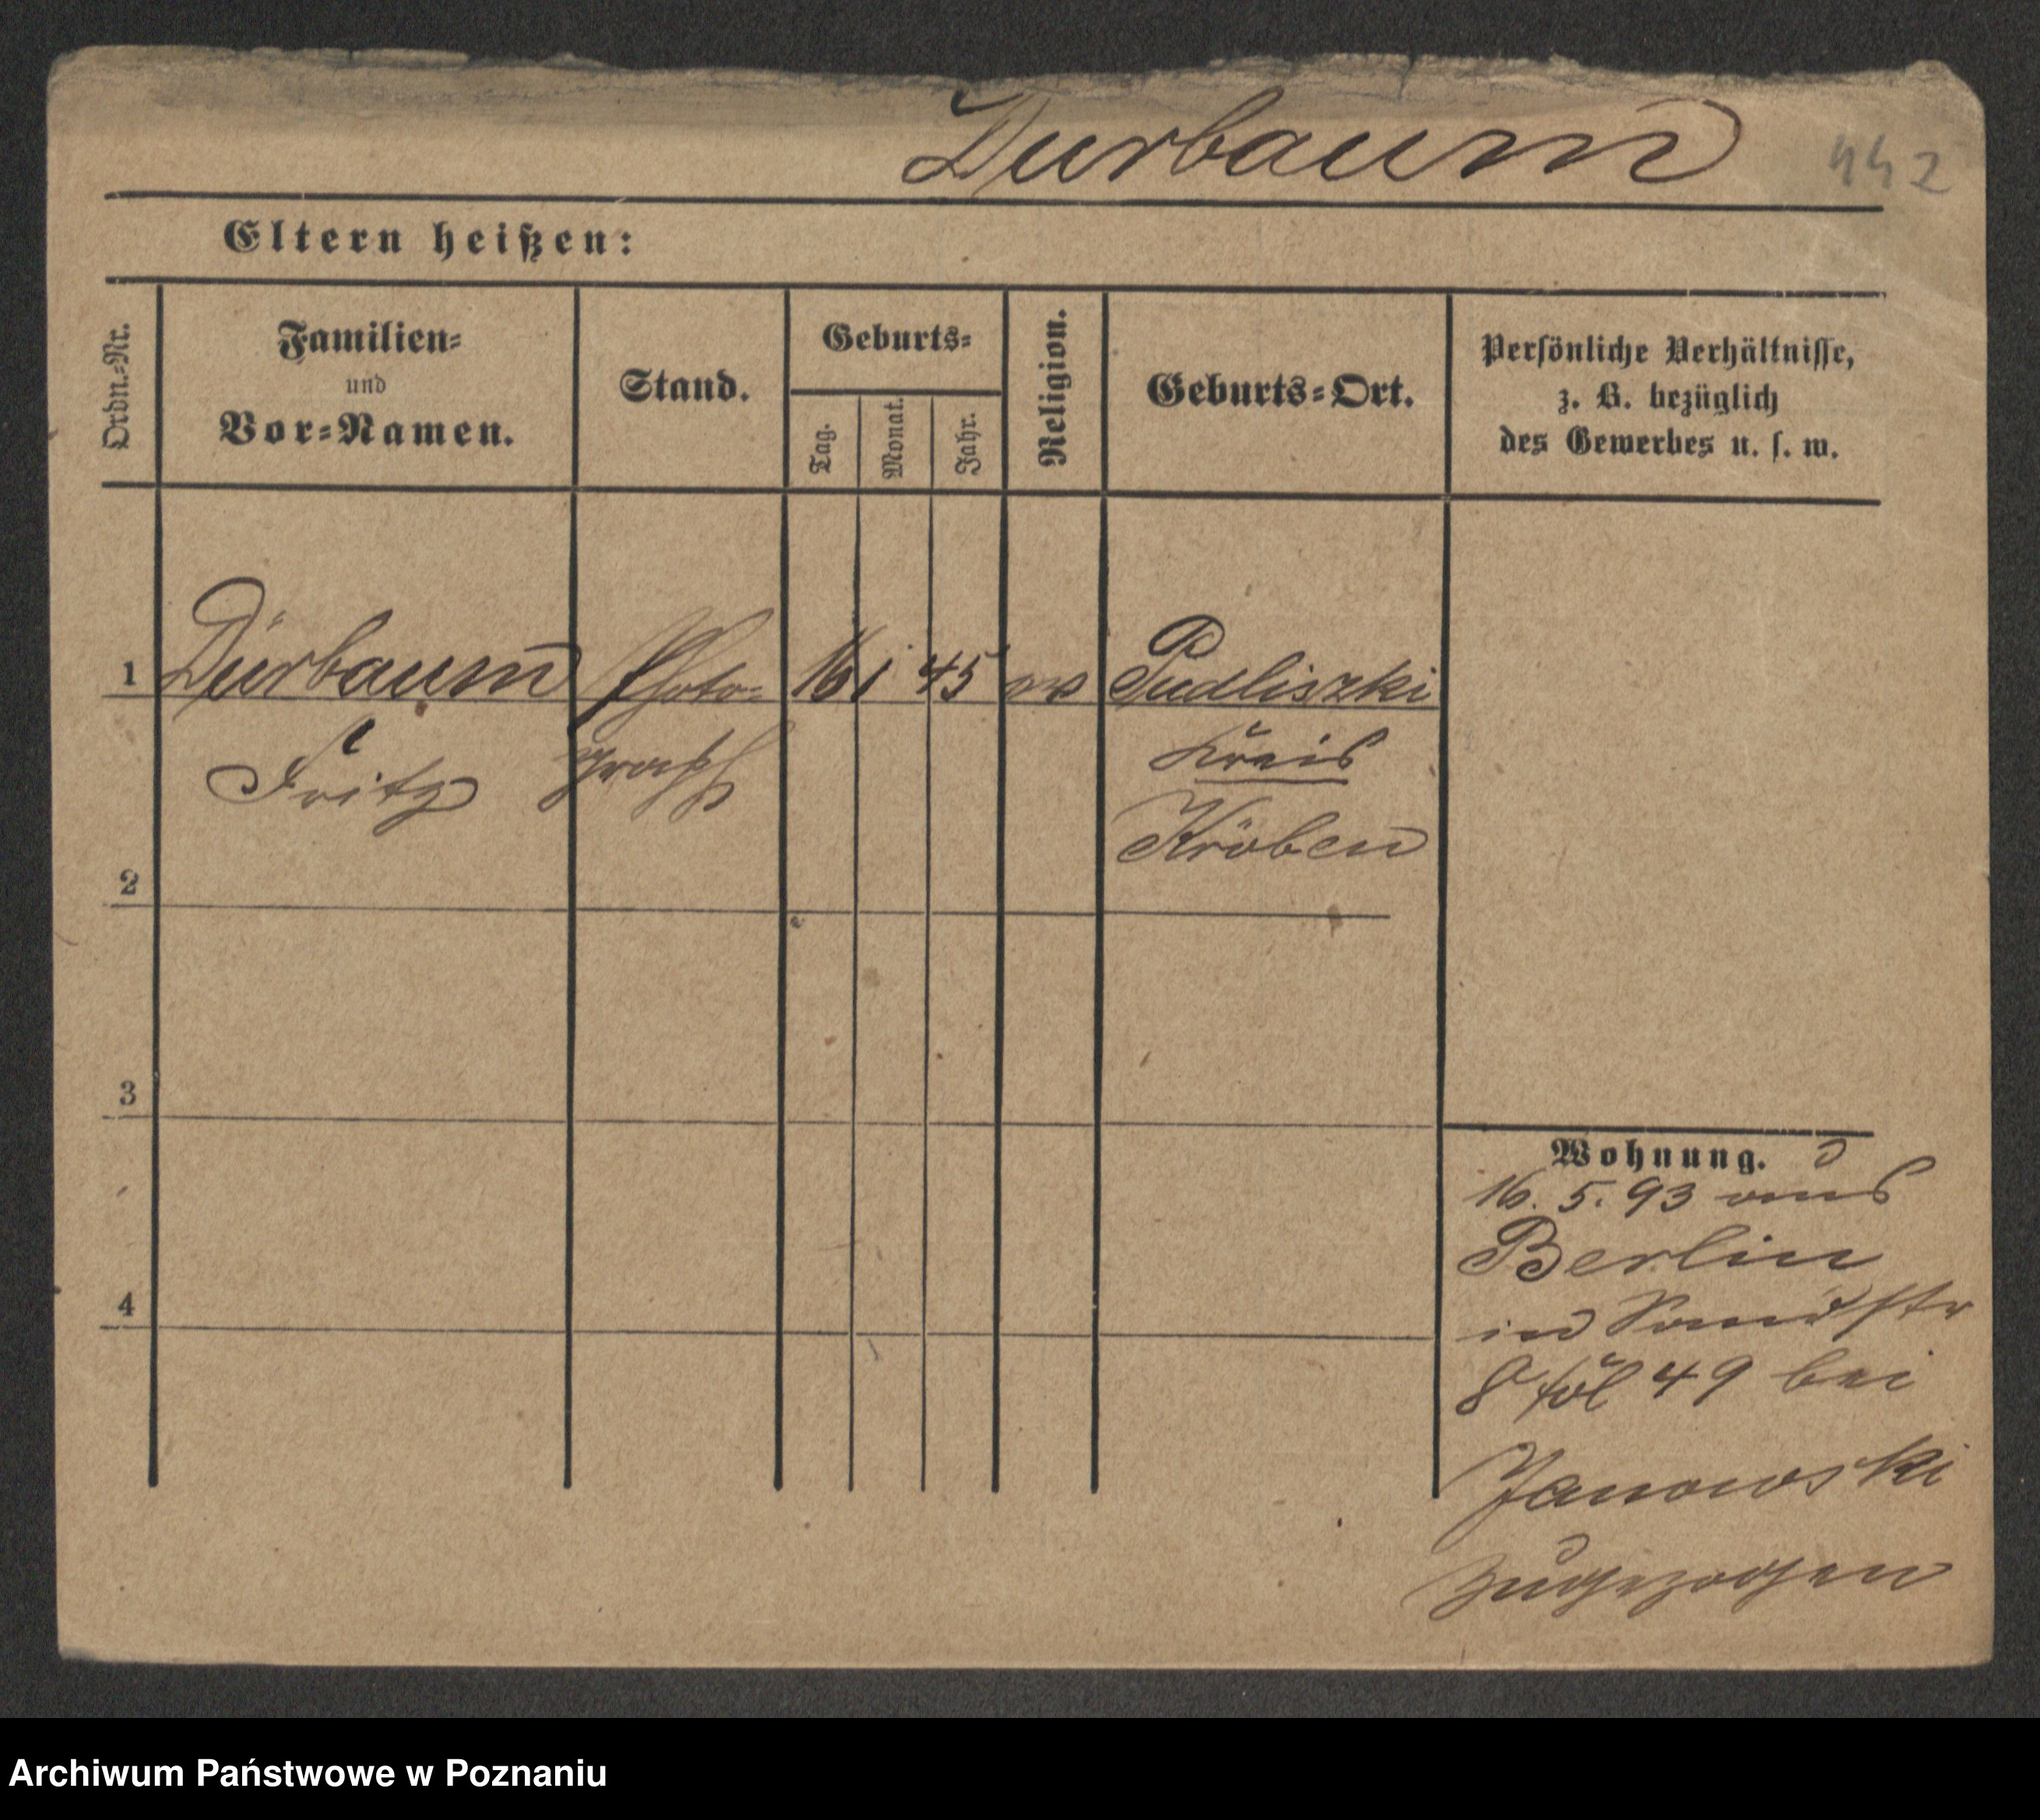 Dürbaum 442
Eltern heißen:
Ordn.-Nr.
Familien-
und
Vor-Namen.
Stand.
Geburts-
Tag.
Monat.
Jahr.
Religion.
Geburts-Ort.
Persönliche Verhältnisse,
z. B. bezüglich
des Gewerbes u. s. w.
1 Dürbaum Photo- 16 1 45 Pudliszki
Fritz graph Kreis
Kröben
2
3
4
Wohnung.
16. 5. 93 aus
Berlin
in Sandstr
8 fol 49 bei
Janowski
zugezogen
Archiwum Państwowe w Poznaniu